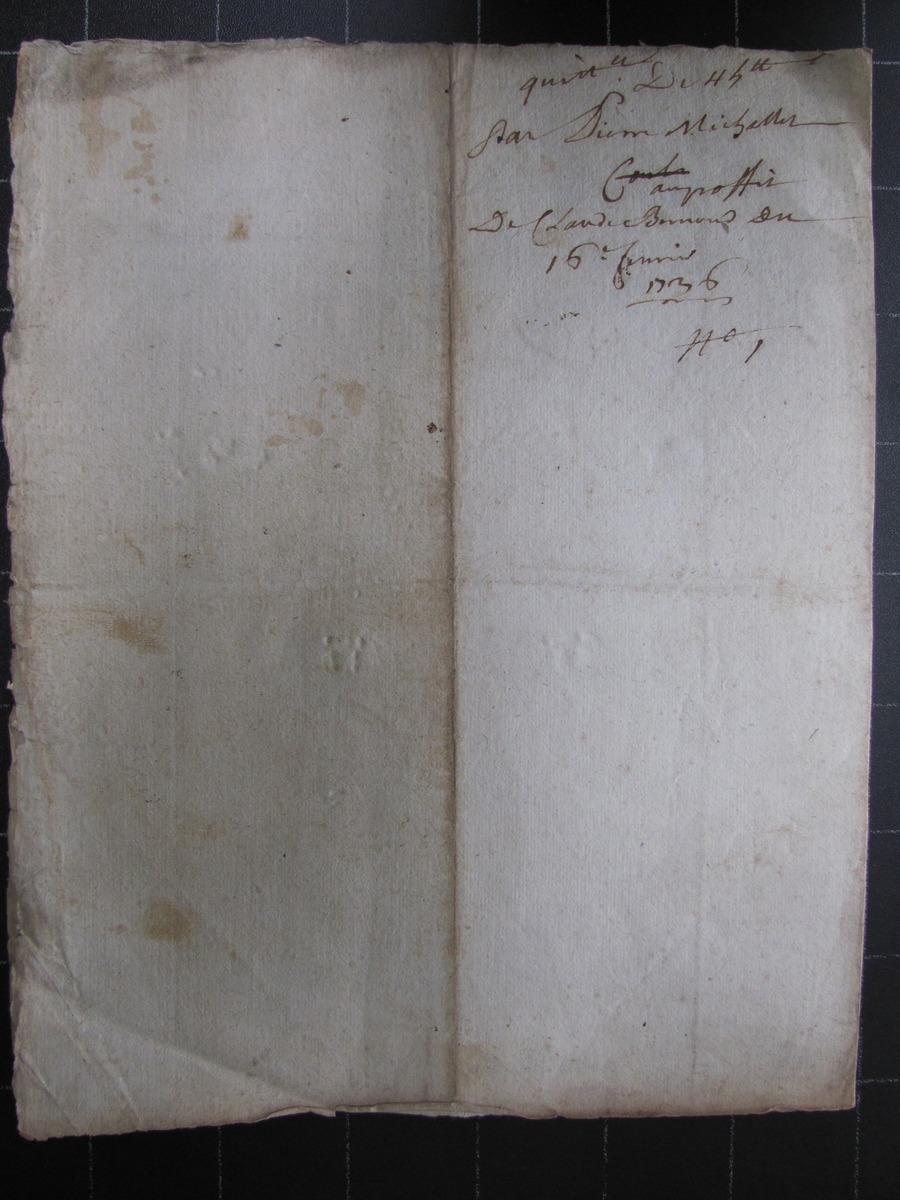 quitt.ce De 45tt
par Pierre Michallet
au proffit
De Claude Bernond Du
16e fevrier
1736